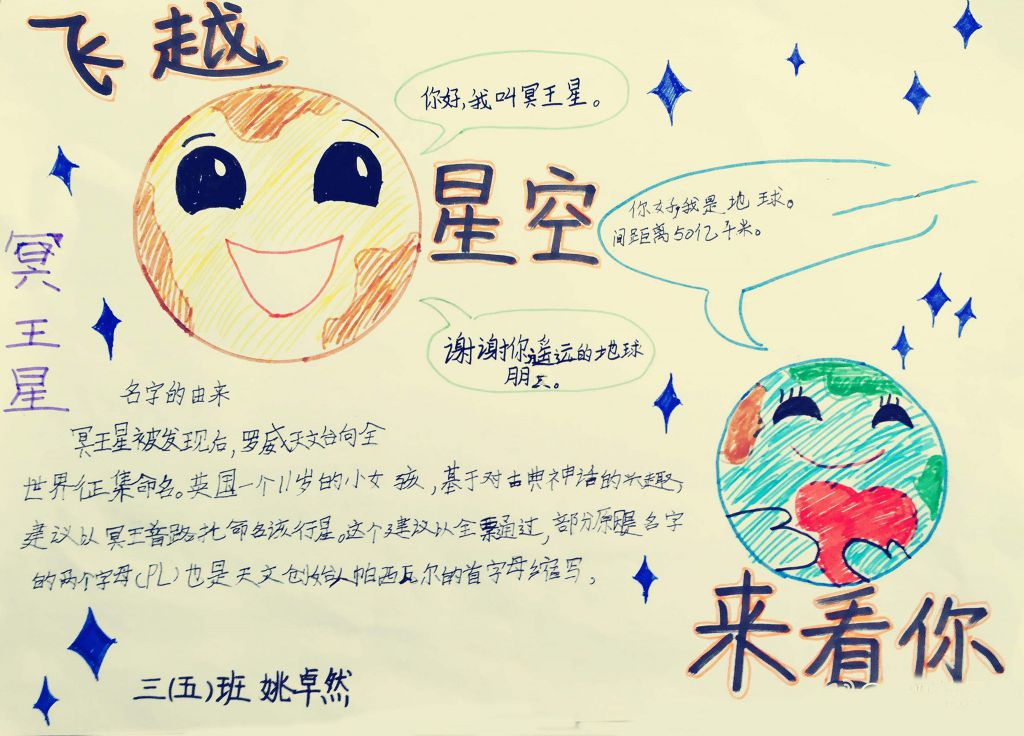 飞越
你好,我叫冥王星。
星空
你好,我是地球。
间距离50亿千米。
冥王星
谢谢你遥远的地球
朋友。
名字的由来
冥王星被发现后,罗威天文台向全
世界征集命名。英国一个11岁的小女孩,基于对古典神话的兴趣,
建议以冥王普路托命名该行星。这个建议以全票通过,部分原是名字
的两个字母(PL)也是天文创始人帕西瓦尔的首字母缩写。
来看你
三(五)班 姚卓然